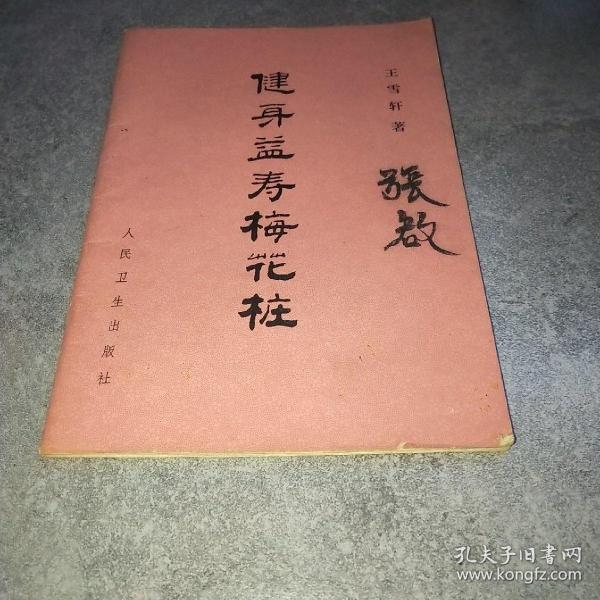 王雪轩 著
健身益寿梅花桩
人民卫生出版社
張啟
孔夫子旧书网
www.kongfz.com